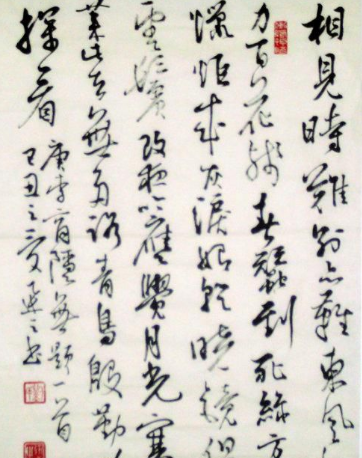 相見時難別亦難東風
力百花殘春蠶到死絲方
蠟炬成灰淚始乾曉鏡但
雲鬢改夜吟應覺月光寒
萊此去無多路青鳥殷勤
探看
唐李商隱無題一首
己丑之夏書